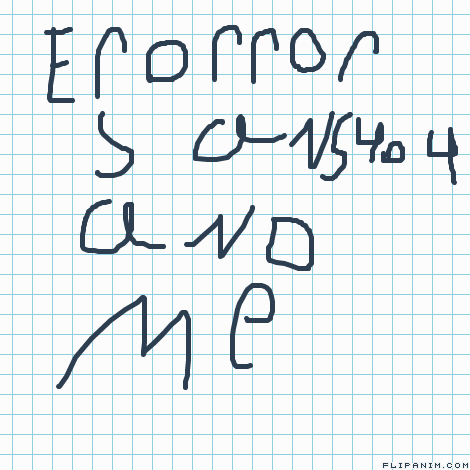 Erorror
S ans404
and
Me
FLIPANIM.COM